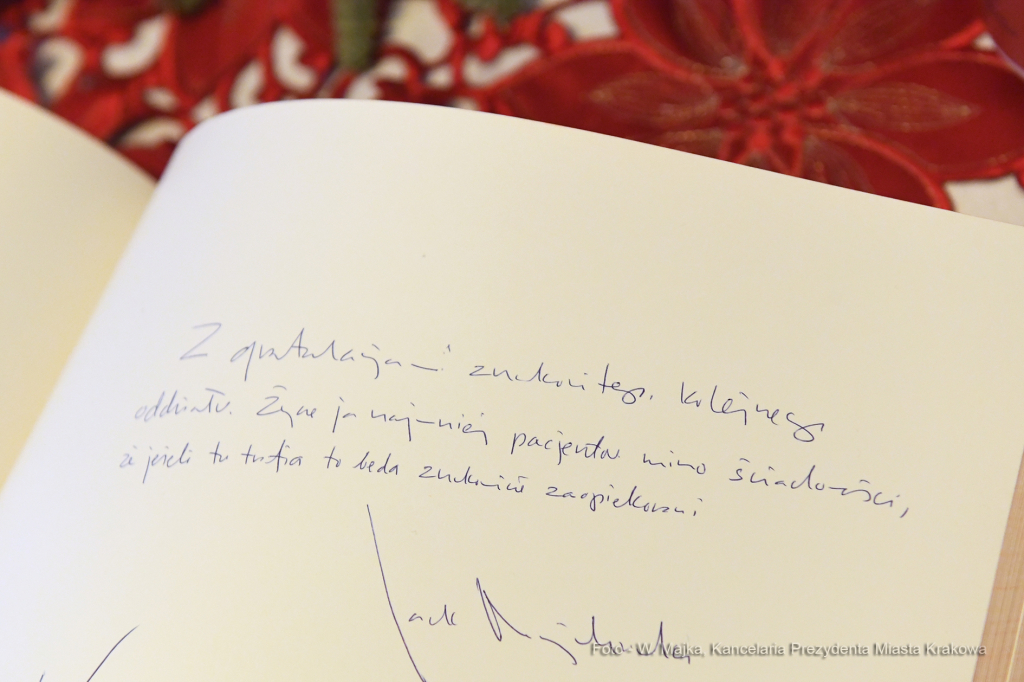 Z gratulacjami znakomitego, kolejnego
oddziału. Życzę jak najmniej pacjentów mimo świadomości,
że jeżeli tu trafią to będą znakomicie zaopiekowani
Jacek
Foto - W. Majka, Kancelaria Prezydenta Miasta Krakowa